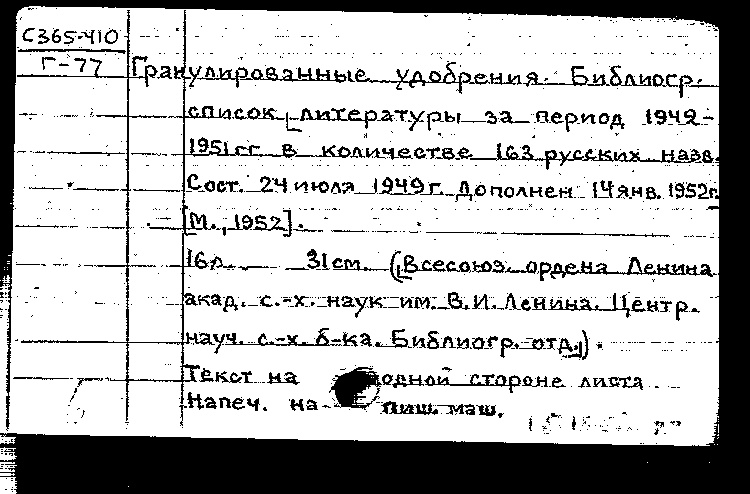 С365-410
Г-77
Гранулированные удобрения. Библиогр.
список литературы за период 1942-
1951 гг в количестве 163 русских назв.
Сост. 24 июля 1949 г. Дополнен 14 янв. 1952 г.
[М., 1952].
16 л. 31 см. (Всесоюз. ордена Ленина
акад. с.-х. наук им. В.И. Ленина. Центр.
науч. с.-х. б-ка. Библиогр. отд.).
Текст на одной стороне листа
Напеч. на пиш. маш.